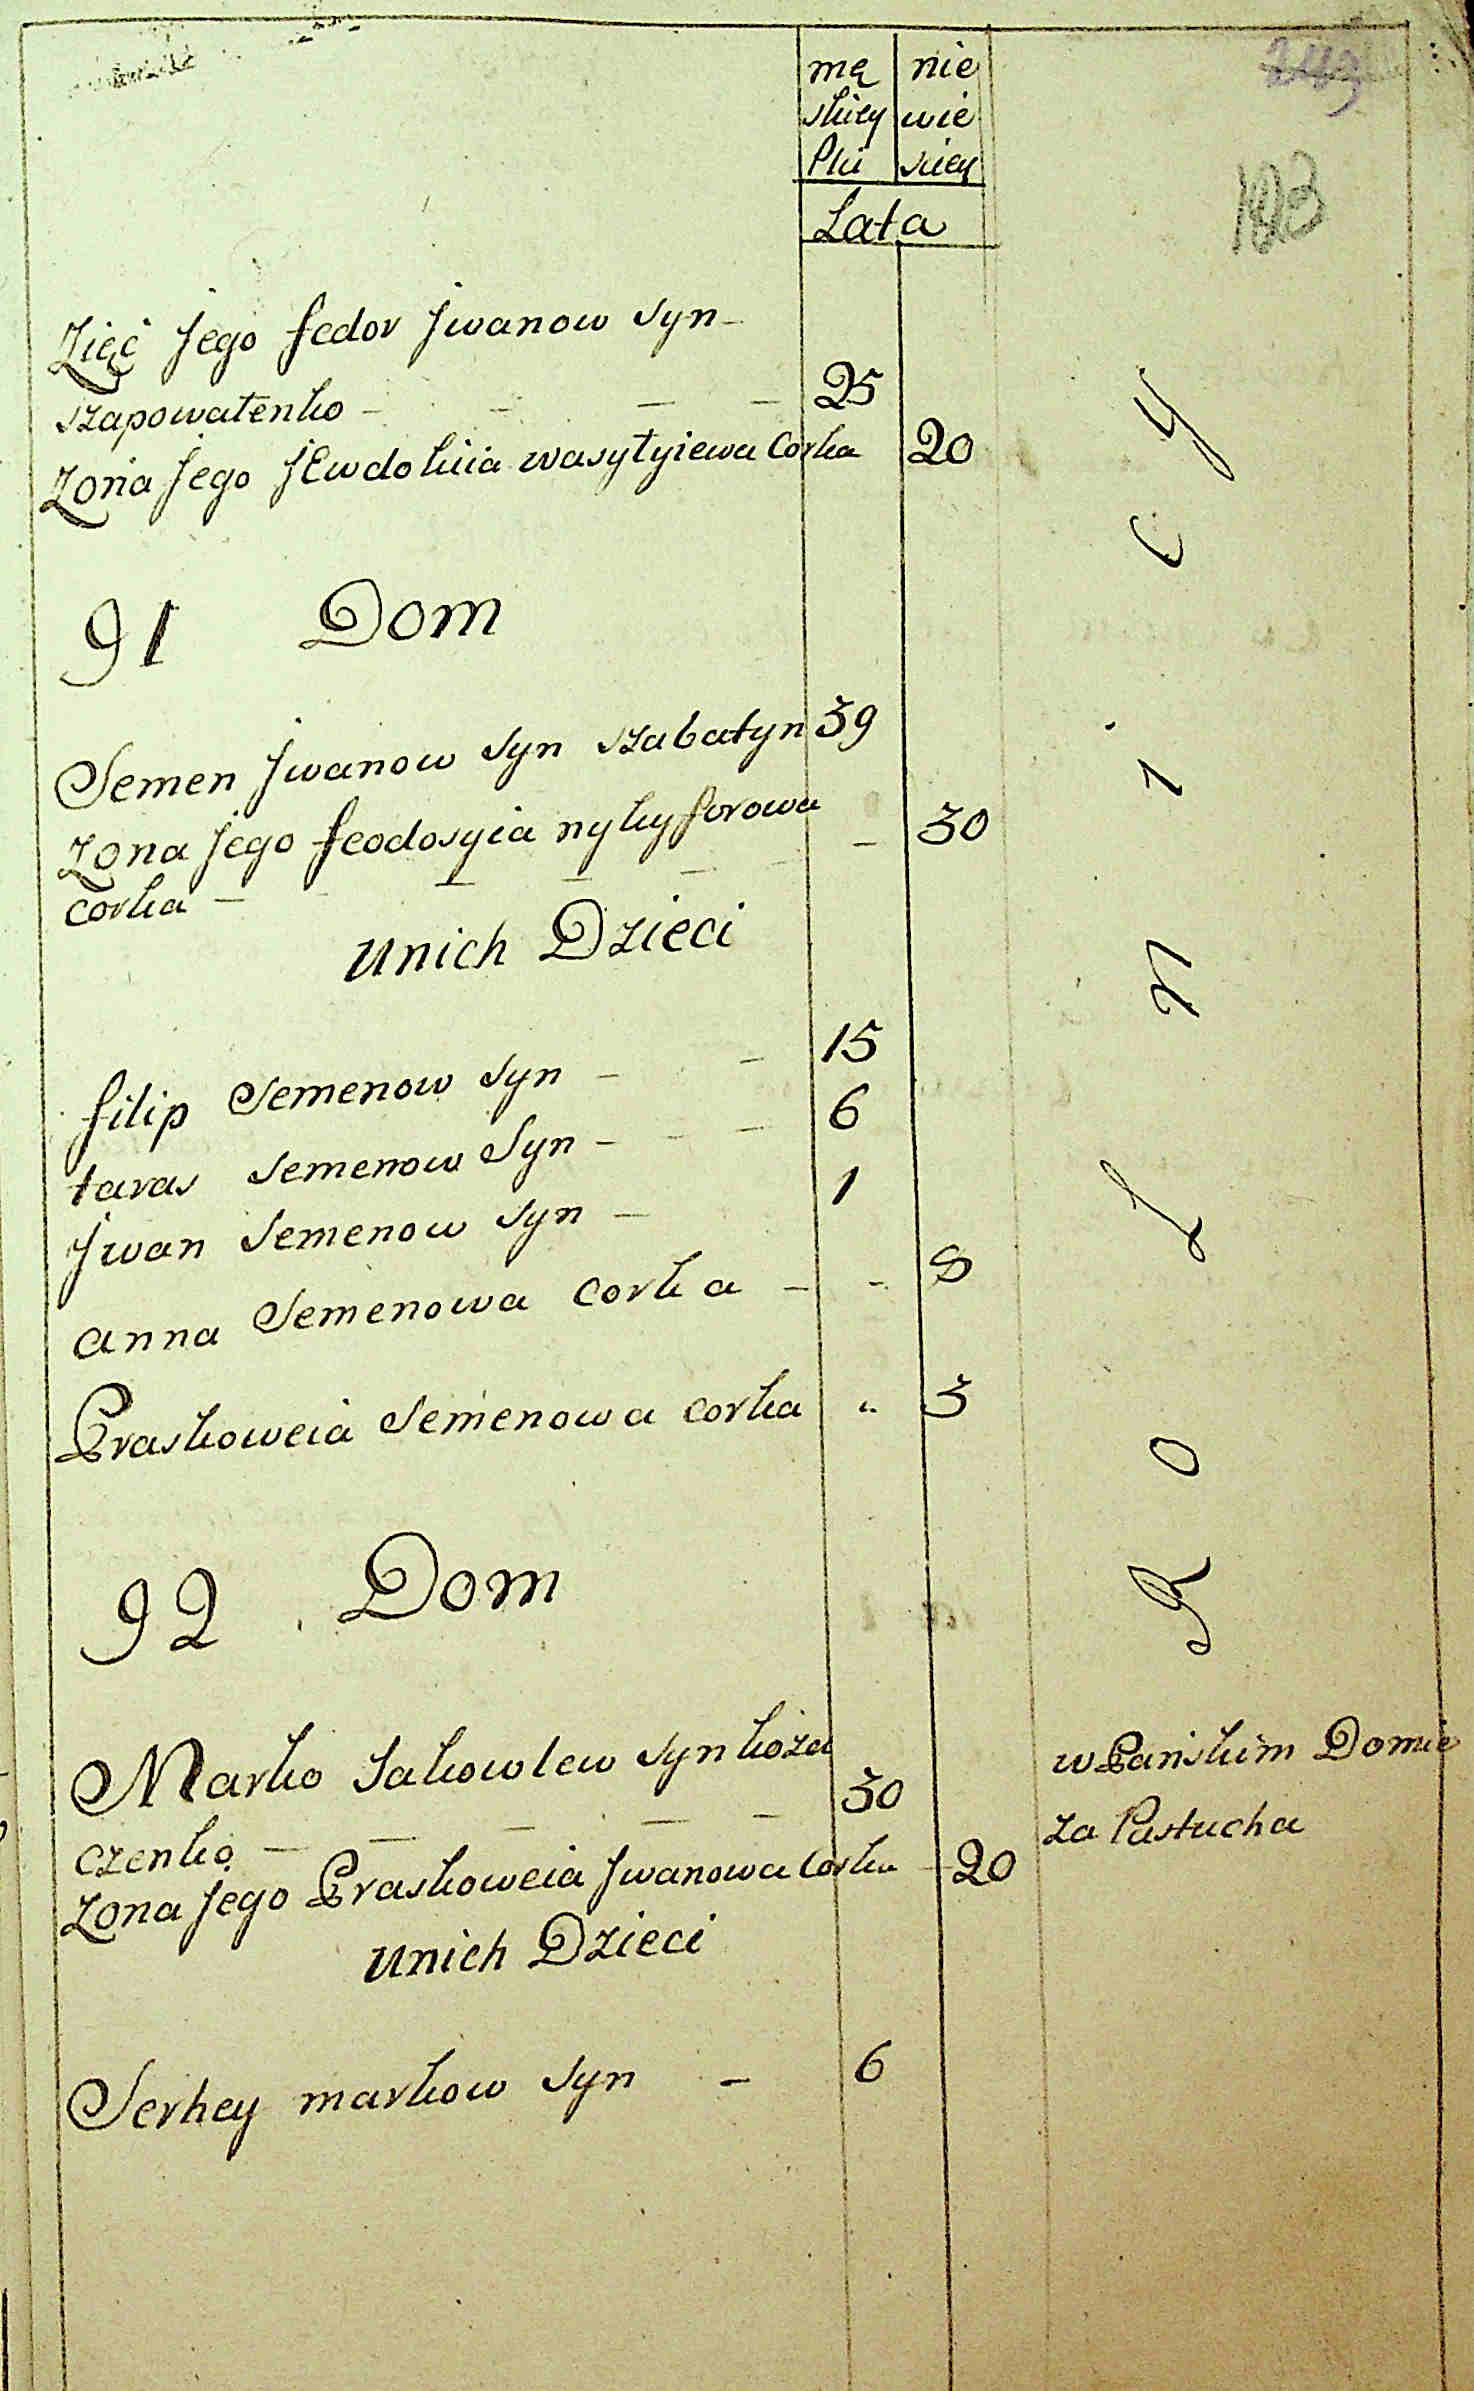 mę nie
skiey wie
Płci sciey
Lata
193
Zięć Jego fedor Jwanow syn
szapowałenko 25
Zona Jego JEwdokiia wasyłyiewa Corka 20
91 Dom
Semen Jwanow syn szabatyn 39
Zona Jego feodosyia nykyforowa 30
Corka
Unich Dzieci
filip Semenow syn 15
taras Semenow Syn 6
Jwan Semenow syn 1
anna Semenowa Corka 8
Praskoweia Semenowa corka 3
92 Dom
Marko Jakowlew syn koza
czenko 30
Zona Jego Praskoweia Jwanowa Corka 20
Unich Dzieci
Serhey markow syn 6
R o l n i c y
w Pańskim Domie
za Pastucha